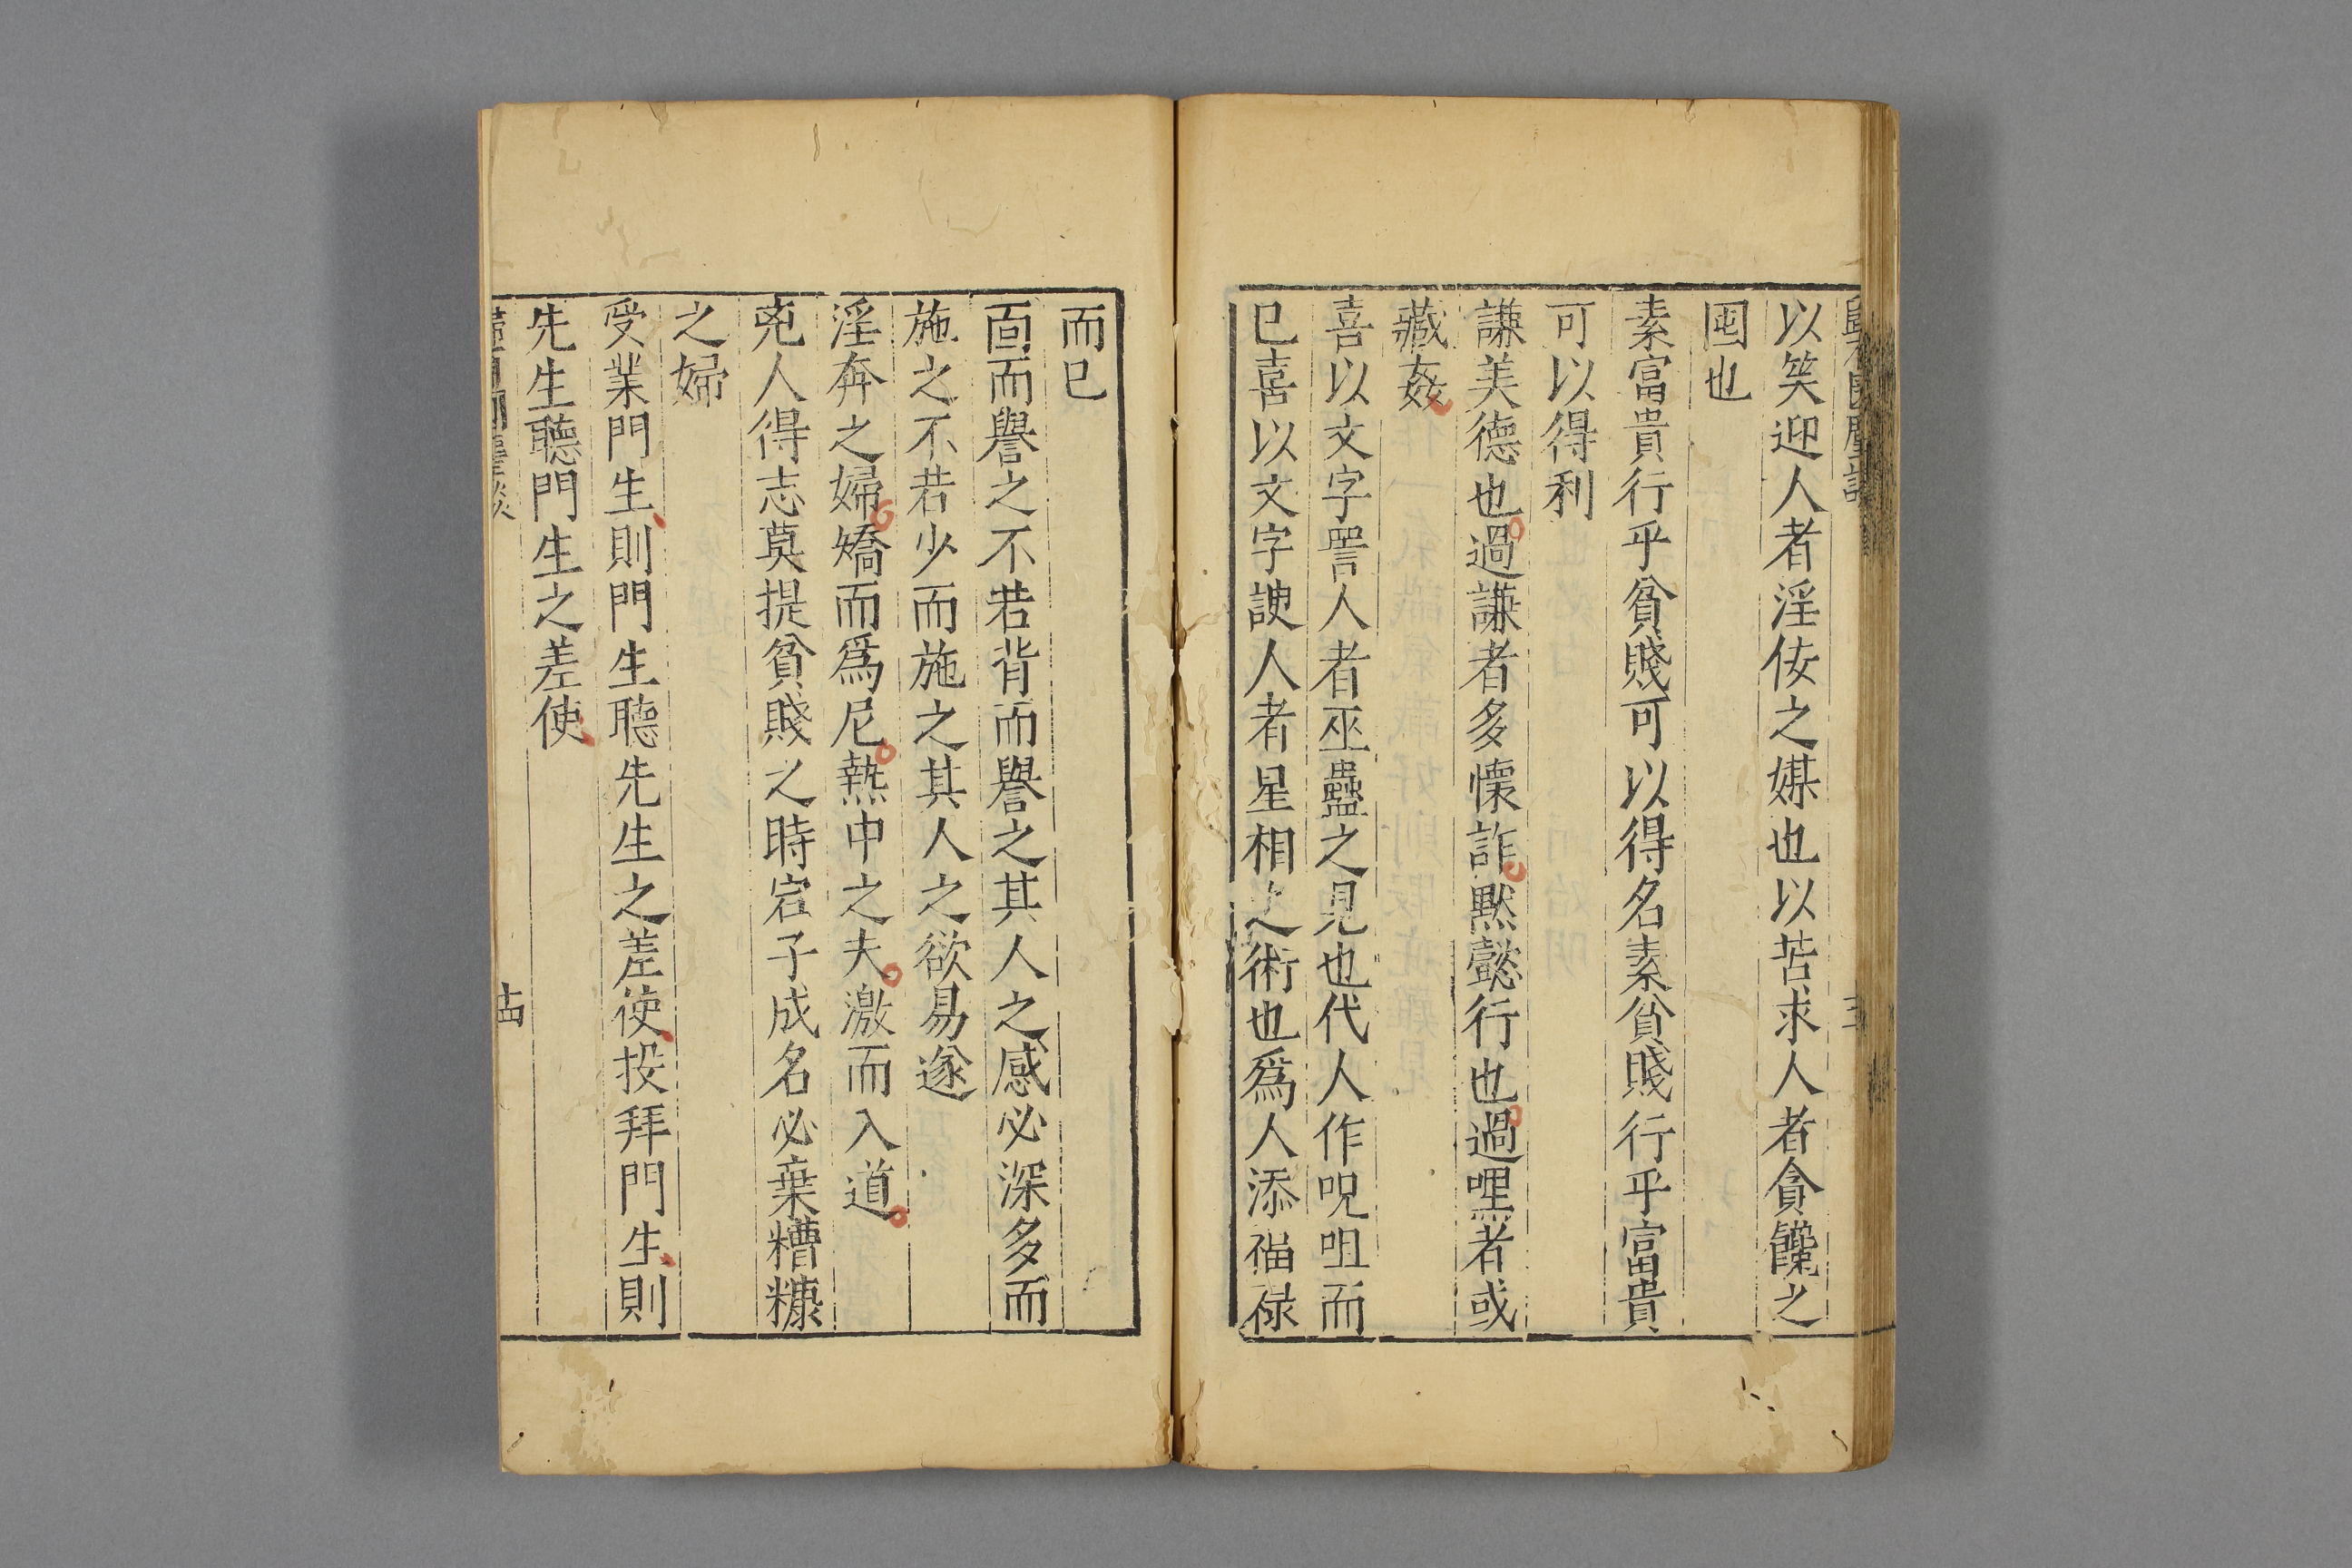 以笑迎人者淫佞之媒也以苦求人者貪饞之
囮也
素富貴行乎貧賤可以得名素貧賤行乎富貴
可以得利
謙美德也過謙者多懷詐黙懿行也過嘿者或
藏姦
喜以文字詈人者巫蠱之見也代人作呪咀而
已喜以文字諛人者星相之術也爲人添福祿
而已
面而譽之不若背而譽之其人之感必深多而
施之不若少而施之其人之欲易遂
淫奔之婦矯而爲尼熱中之夫激而入道
兎人得志莫提貧賤之時宕子成名必棄糟糠
之婦
受業門生則門生聽先生之差使投拜門生則
先生聽門生之差使